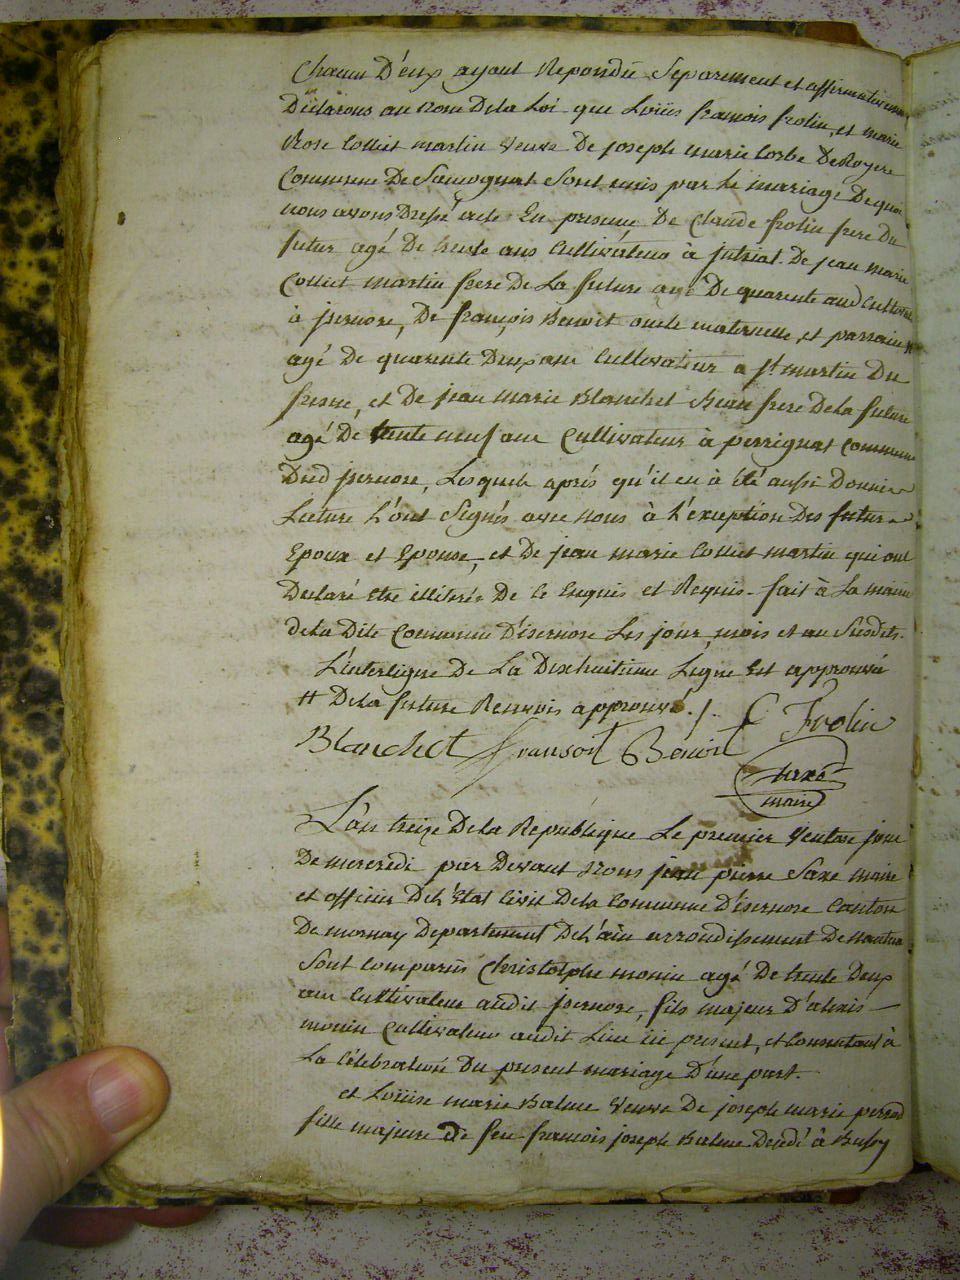 Chacun D'eux ayant Repondu Separement et affirmativement
Déclarons au Nom De la Loi que Loüis françois frolin, et marie
Rose Collet martin Veuve De joseph marie Corbe De Royere
Commune De Samognat Sont unis par le mariage De quoi
nous avons Dressé acte En presence De Claude frolin frere Du
futur agé De trente ans Cultivateur à De jean marie
Collet martin frere De La future agé De quarente ans Cultivat
à jsernore, De françois Benoit oncle maternelle, et parrain #
agé De quarente Deux ans Cultivateur a st martin Du
fresne, et De jean marie Blanchet Beau frere De la future
agé De trente neuf ans Cultivateur à perrignat Commune
Dud jsernore, Lesquels aprés qu'il en à été aussi Donné
Lecture L'ont Signés avec nous à l'exception Des futur
Epoux et Epouse, et De jean marie Collet martin qui ont
Declaré etre illitrés De ce Enquis et Requis. fait à La mairie
de la Dite Commune D'isernore Les jour mois et an Susdits.
L'interligne De La Dixhuitieme Ligne Est approuvé
# De la future Renvois approuvé ./. C Frolin
Blanchet fransoit Bénoit
Saxe
maire
L'an treize De la République Le premier Ventose jour
De mercredi par Devant Nous jean pierre Saxe maire
et officier De L'Etat Civil De la Commune D'isernore Canton
De mornay Departement De L'ain arrondissement De nantua
Sont Comparus Christophe monin agé De trente Deux
ans Cultivateur audit jsernore, fils majeur D'alexis
monin Cultivateur audit Lieu ici present, et Consentant à
La Célébration Du present mariage D'une part.
et Loüise marie Balme Veuve De joseph marie perrod
fille majeure De feu françois joseph Balme Decedé à Bussy